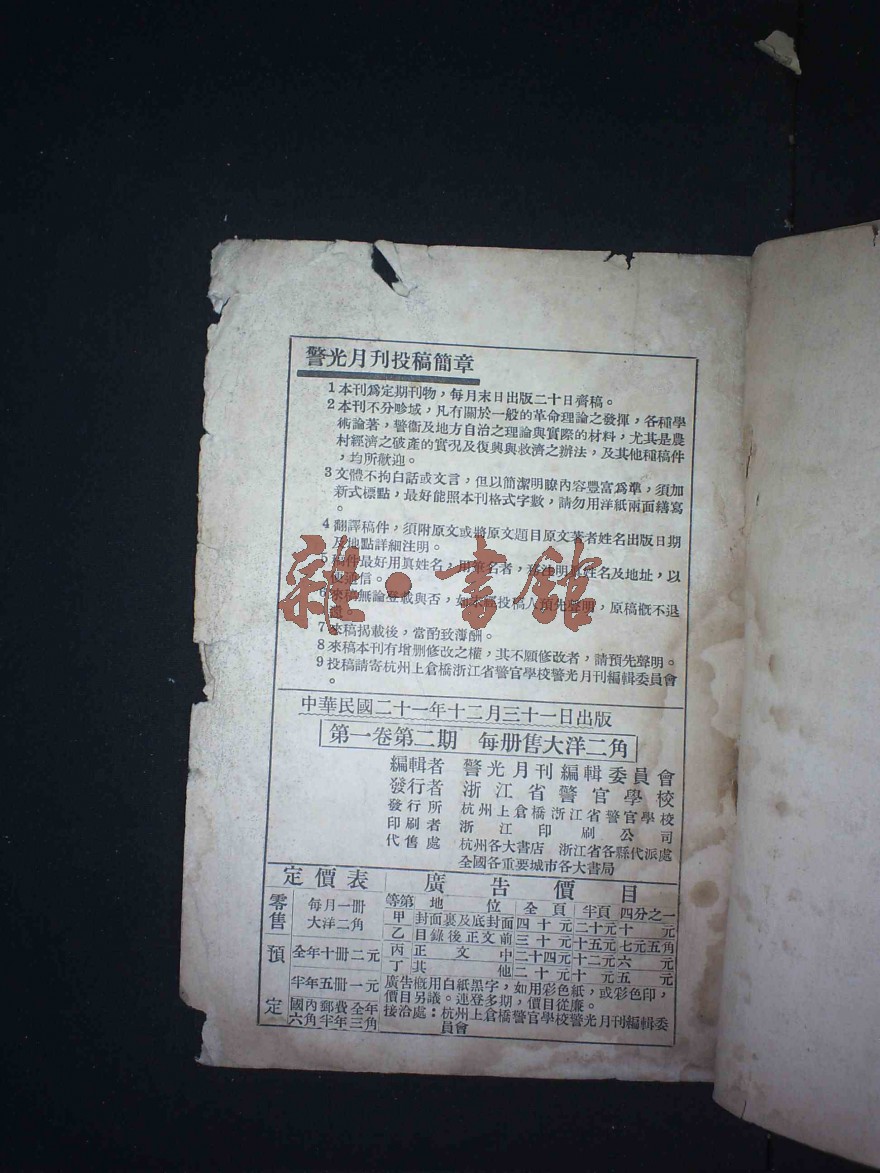 警光月刊投稿簡章
1 本刊爲定期刊物，每月末日出版二十日齊稿。
2 本刊不分畛域，凡有關於一般的革命理論之發揮，各種學
術論著，警衞及地方自治之理論與實際的材料，尤其是農
村經濟之破產的實況及復興與救濟之辦法，及其他種稿件
，均所歡迎。
3 文體不拘白話或文言，但以簡潔明瞭內容豐富爲準，須加
新式標點，最好能照本刊格式字數，請勿用洋紙兩面繕寫
。
4 翻譯稿件，須附原文或將原文題目原文著者姓名出版日期
及地點詳細注明。
5 稿件最好用眞姓名，用筆名者，注明眞姓名及地址，以
便通信。
6 來稿無論登載與否，如未經投稿人預先聲明，原稿概不退
7 來稿揭載後，當酌致薄酬。
8 來稿本刊有增刪修改之權，其不願修改者，請預先聲明。
9 投稿請寄杭州上倉橋浙江省警官學校警光月刊編輯委員會
。
雜·書館
中華民國二十一年十二月三十一日出版
第一卷第二期 每册售大洋二角
編輯者 警光月刊編輯委員會
發行者 浙江省警官學校
發行所 杭州上倉橋浙江省警官學校
印刷者 浙江印刷公司
代售處 杭州各大書店 浙江省各縣代派處
全國各重要城市各大書局
定價表
零售 每月一冊
大洋二角
預定 全年十冊二元
半年五冊一元
國內郵費全年
六角半年三角
廣告價目
等第 地位 全頁 半頁 四分之一
甲 封面裏及底封面 四十元 二十元 十元
乙 目錄後正文前 三十元 十五元 七元五角
丙 正文中 二十四元 十二元 六元
丁 其他 二十元 十元 五元
廣告概用白紙黑字，如用彩色紙，或彩色印，
價目另議。連登多期，價目從廉。
接洽處：杭州上倉橋警官學校警光月刊編輯委
員會